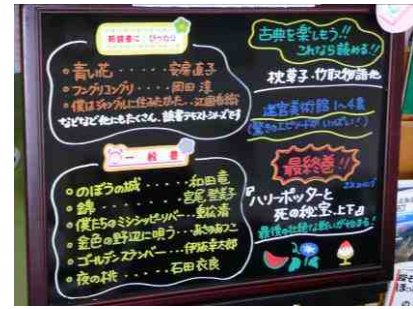 朝読書にぴったり
。青い花・・・・・安房直子
。フングリコングリ・・・・岡田淳
。僕はジャングルに住みたかった
などなど他にもたくさん、読書テキストシリーズです
一般書
。のぼうの城・・・・・和田竜
。錦・・・・・宮尾登美子
。僕たちのミシシッピ・リバー・・・重松清
。金色の野辺に唄う・・・あさのあつこ
。ゴールデンスランバー・・・伊坂幸太郎
。夜の桃・・・・石田衣良
古典を楽しもう!!
これなら読める!!
枕草子・竹取物語他
迷宮美術館1~4集
(驚きのエピソードがいっぱい!)
最終巻!!
『ハリーポッターと
死の秘宝 上下』
最後の壮絶な戦いが始まる!